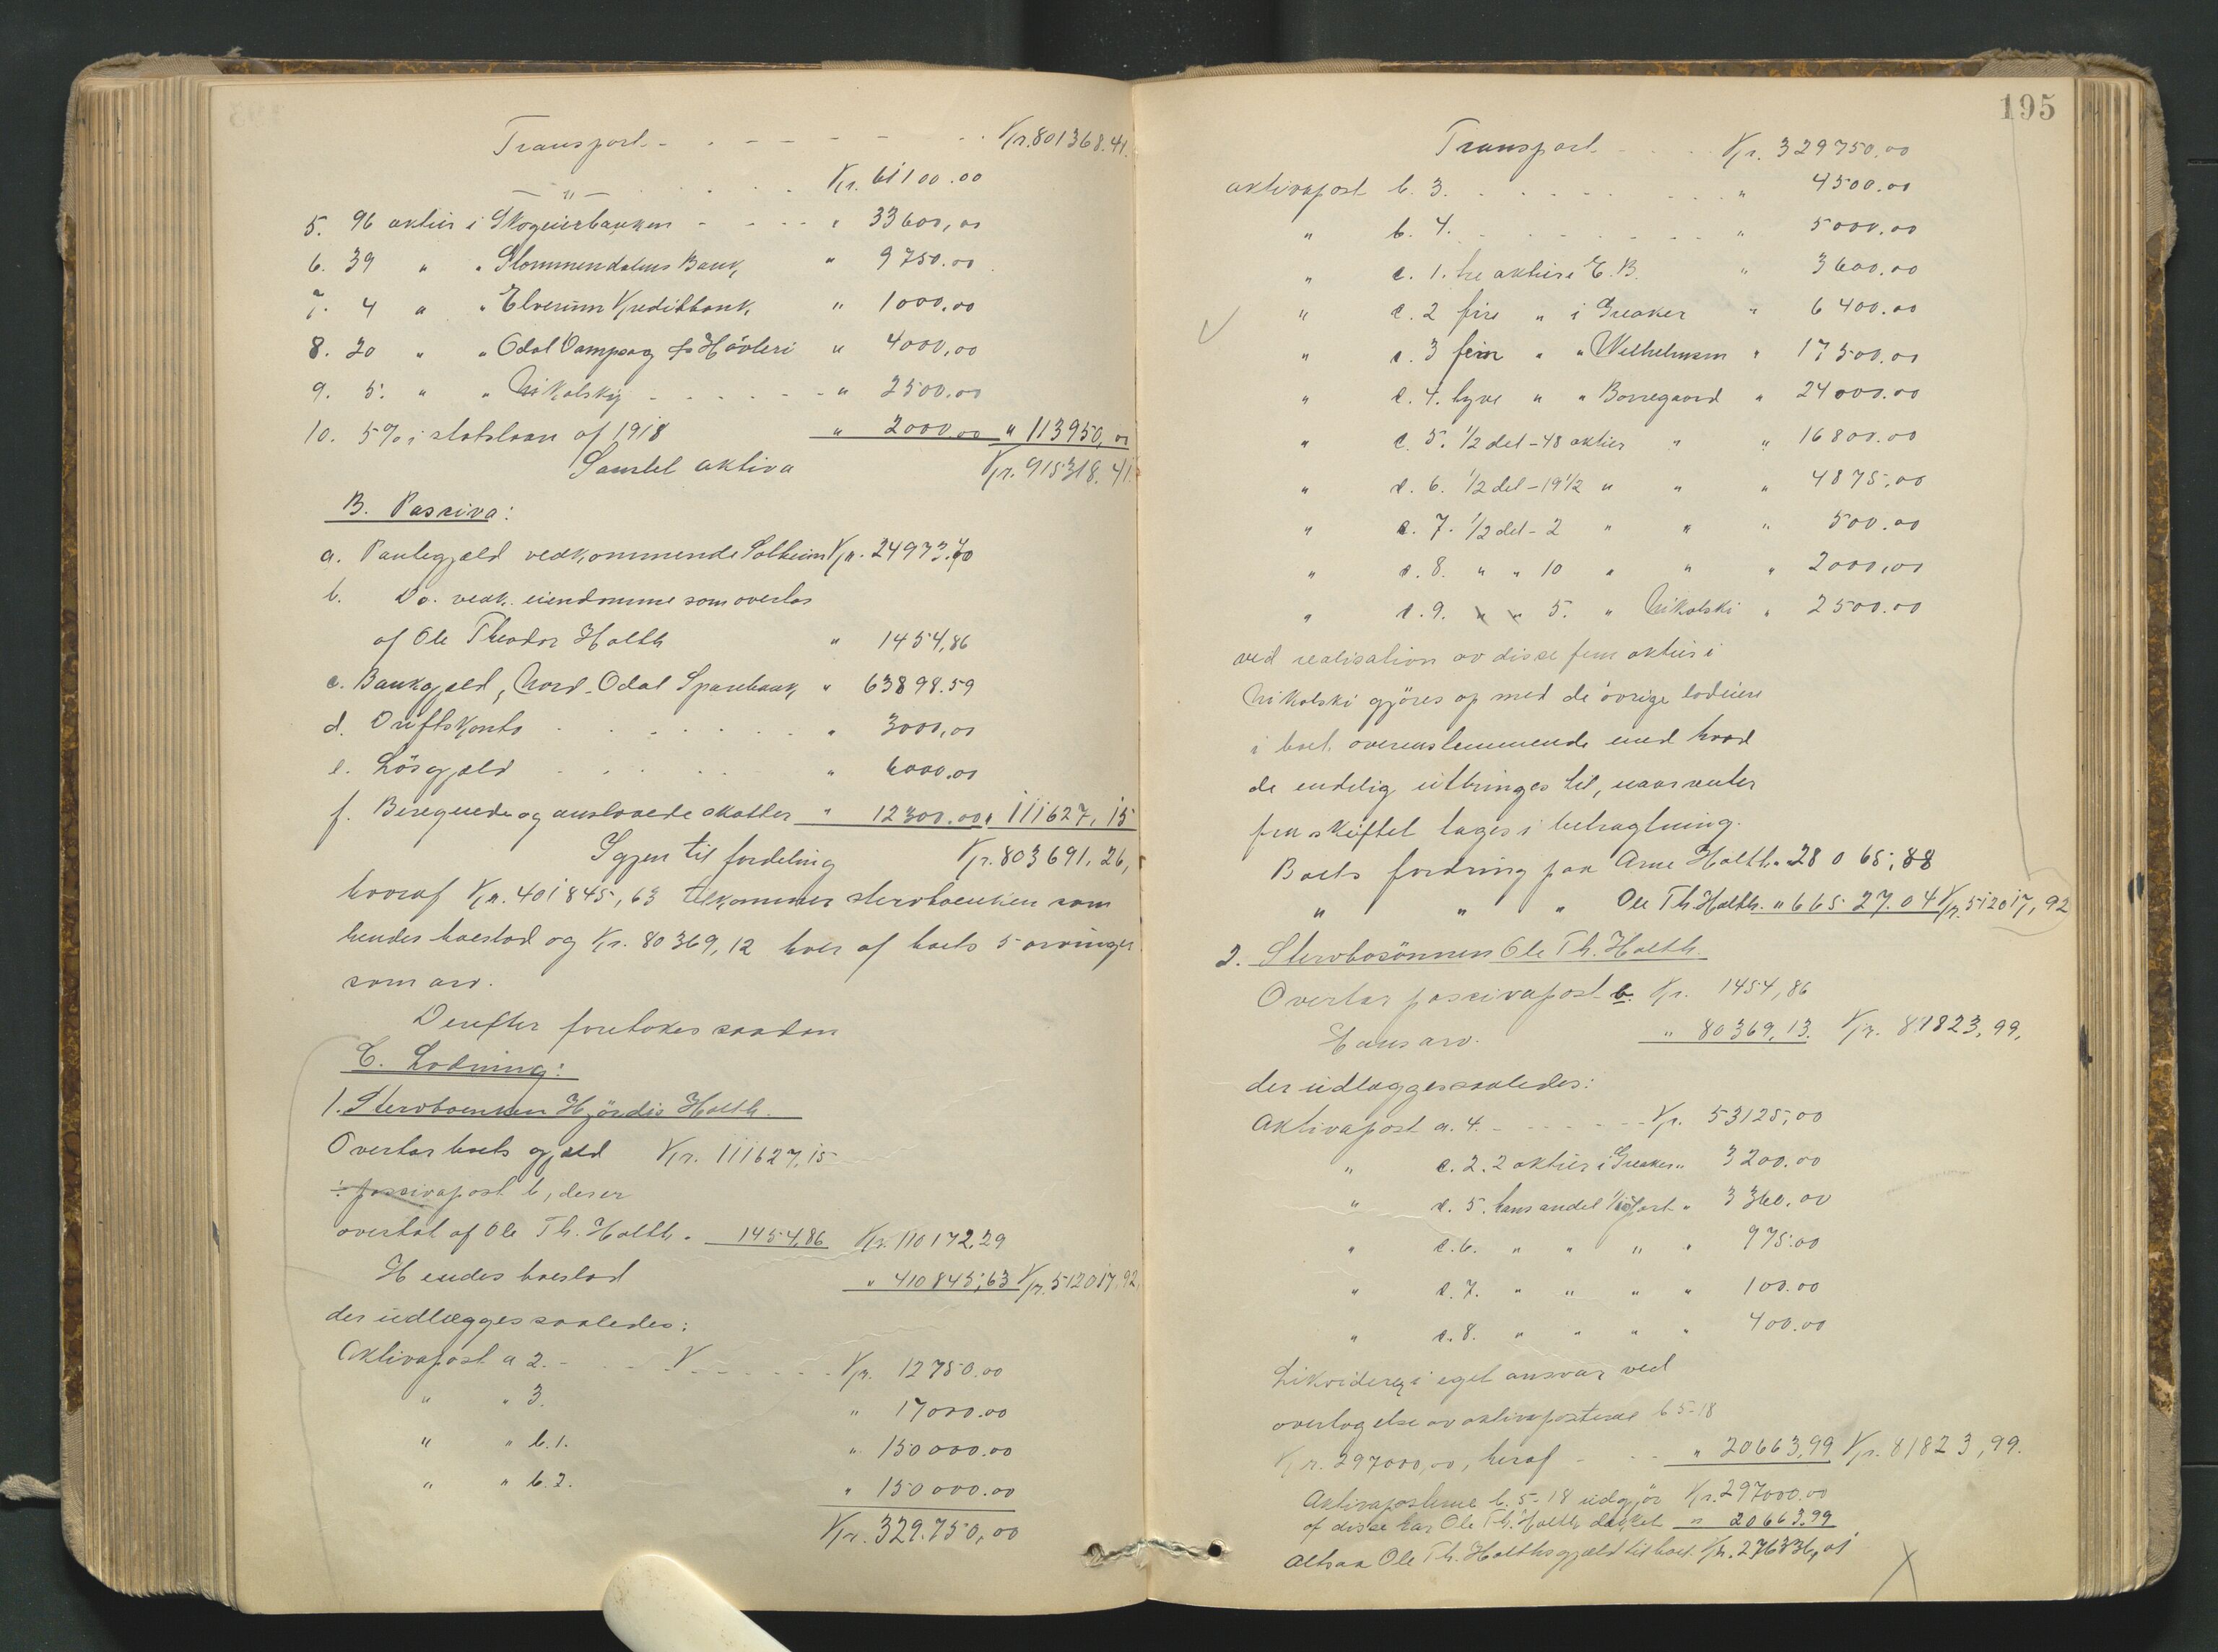 Transport Kr. 801368.41.
— " — Kr. 61100.00
5. 96 aktier i Skogeierbanken " 33600,00
6. 39 " " Glommendalens Bank, " 9750.00
7. 4 " " Elverum Kreditbank, " 1000.00
8. 20 " " Odal Dampsag & Høvleri " 4000,00
9. 5. " " Nikolsky " 2500.00
10. 5% i statslaan af 1918 " 2000.00 " 113950,00
Samlet aktiva Kr. 915318.41.
B. Passiva:
a. Pantegjæld vedkommende Solheim Kr. 24973.70
b. Do. vedk. eiendomme som overtas
af Ole Theodor Holth " 1454,86
c. Bankgjæld, Nord-Odal Sparebank, " 63898.59
d. Driftskonto " 3000,00
e. Løsgjæld " 6000.00
f. Beregnede og anslaaede skatter " 12300.00 " 111627,15
Igjen til fordeling Kr. 803691,26,
hvoraf Kr. 401845,63 tilkommer stervboenken som
hendes boeslod og Kr. 80369,12 hver af boets 5 arvinger
som arv.
Derefter foretokes saadan
C. Lodning:
1. Stervboenken Hjørdis Holth.
Overtar boets gjæld Kr. 111627,15
÷ passivapost b, der er
overtat af Ole Th. Holth " 1454,86 Kr. 110172,29
Hendes boeslod " 410845,63 Kr. 512017,92
der udlægges saaledes:
Aktivapost a 2. Kr. 12750.00
" " 3. " 17000.00
" " b.1. " 150000.00
" " b.2. " 150000.00
Kr. 329.750,00
195
Transport Kr. 329750,00
aktivapost b. 3. " 4500.00
" b. 4. " 5000.00
" c. 1. tre aktier i E.B. " 3600.00
" c. 2 fire " i Greaker " 6400.00
" c. 3 fem " " Wilhelmsen " 17500.00
" c. 4. tyve " " Borregaard " 24000.00
" c. 5. 1/2 del - 48 aktier " " 16800.00
" c. 6. 1/2 del - 19 1/2 " " " 4875,00
" c. 7. 1/2 del - 2 " " " 500.00
" c. 8. " " 10 " " " 2000,00
" c. 9. " " 5. " Nikolski " 2500.00
ved realisation av disse fem aktier i
Nikolski gjøres op med de øvrige lodeiere
i boet overensstemmende med hvad
de endelig utbringes til, naar renter
fra skiftet tages i betragtning.
Boets fordring paa Arne Holth " 28065,88
" " " Ole Th. Holth. " 66527.04 Kr. 512017,92
2. Stervbosønnen Ole Th. Holth.
Overtar passivapost b. Kr. 1454,86
Hans arv. " 80369,13. Kr. 81823,99,
der udlægges saaledes:
Aktivapost a. 4. Kr. 53125,00
" c. 2. 2 aktier i Greaker " 3200.00
" c. 5. hans andel 1/10 part " 3360.00
" c. 6. " " " " 975.00
" c. 7. " " " " 100.00
" c. 8. " " " " 400.00
Likviderer i eget ansvar ved
overtagelse av aktivaposterne b 5-18
Kr. 297000,00, heraf " 20663,99 Kr. 81823,99.
Aktivaposterne b. 5-18 udgjør Kr. 297000.00
af disse har Ole Th. Holth dækket " 20663,99
altsaa Ole Th. Holths gjæld til boet Kr. 276336,01